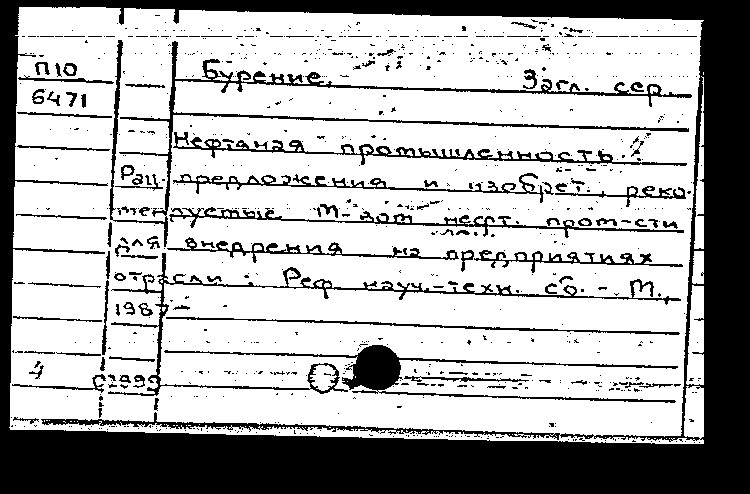 П10 Бурение. Загл. сер.
6471
Нефтяная промышленность.
Рац. предложения и изобрет., реко-
мендуемые М-вом нефт. пром-сти
для внедрения на предприятиях
отрасли : Реф. науч.-техн. сб. - М.,
1987 -
4